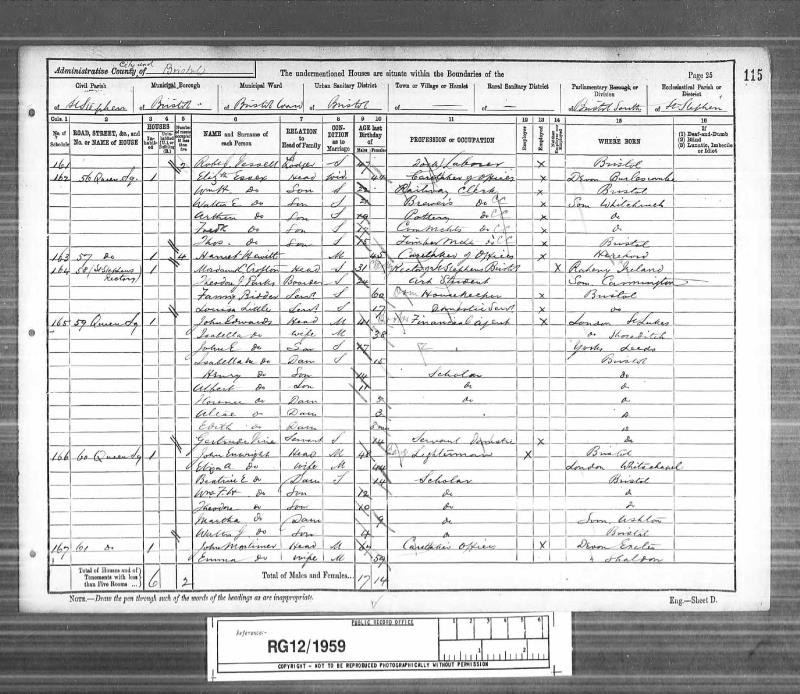 Administrative County of City and Bristol
The undermentioned Houses are situate within the Boundaries of the
Page 25
115
Civil Parish
of St Stephen
Municipal Borough
of Bristol
Municipal Ward
of Bristol Ward
Urban Sanitary District
of Bristol
Town or Village or Hamlet
of —
Rural Sanitary District
of —
Parliamentary Borough or Division
of Bristol South
Ecclesiastical Parish or District
of St Stephen
Cols. 1 2 3 4 5 6 7 8 9 10 11 12 13 14 15 16
No. of Schedule
ROAD, STREET, &c., and No. or NAME of HOUSE
HOUSES
NAME and Surname of each Person
RELATION to Head of Family
CONDITION as to Marriage
AGE last Birthday of
Males Females
PROFESSION or OCCUPATION
Employer
Employed
WHERE BORN
If (1) Deaf-and-Dumb (2) Blind (3) Lunatic, Imbecile or Idiot
161 2 Lodger S Dock Labourer x Bristol
162 56 Queen Sq. 1 Elizth Essex Head Wid 44 Caretaker of Offices x Devon
Wm H do Son S Railway Clerk x Bristol
Walter E do Son S 21 Brewers do CC x Som Whitchurch
Arthur do Son S 19 Pottery do CC x do
Fredk do Son S do CC x do
Thos. do Son S 15 Timber do CC x Bristol
163 57 do 1 4 Harriet Hewitt M 45 Caretaker of Offices x Hereford
164 St Stephens Rectory 1 Crofton Head S 31 Rector of St Stephens Bristol x Raheny Ireland
Theodore J Parks Boarder S 24 Art Student Som Cannington
Fanny Bidder Servt S 60 Housekeeper x Bristol
Louisa Little Servt S 17 Domestic Servt x do
165 59 Queen Sq 1 John Edwards Head M 41 Financial Agent x London St Lukes
Isabella do Wife M 38 do Shoreditch
John E do Son S 17 Yorks Leeds
Isabella do Daur S 15 Bristol
Henry do Son 14 Scholar do
Albert do Son 11 do do
Florence do Daur do do
Alice do Daur 3 do
Edith do Daur do
Gertrude Servant S 14 Servant Domestic x do
166 60 Queen Sq 1 John Enright Head M 48 Lighterman x Bristol
Eliza A do Wife M 44 London Whitechapel
Beatrice E do Daur S 14 Scholar Bristol
do Son 12 do do
Theodore do Son 10 do do
Martha do Daur 9 do Som Ashton
Walter J do Son 4 do Bristol
167 61 do 1 John Mortimer Head M Caretaker Offices x Devon Exeter
Emma do Wife M 59 " Shaldon
Total of Houses and of Tenements with less than Five Rooms 6 2
Total of Males and Females... 17 14
NOTE.—Draw the pen through such of the words of the headings as are inappropriate.
Eng.—Sheet D.
PUBLIC RECORD OFFICE
Reference:-
RG12/1959
1 2 3 4 5 6
1 2
COPYRIGHT - NOT TO BE REPRODUCED PHOTOGRAPHICALLY WITHOUT PERMISSION